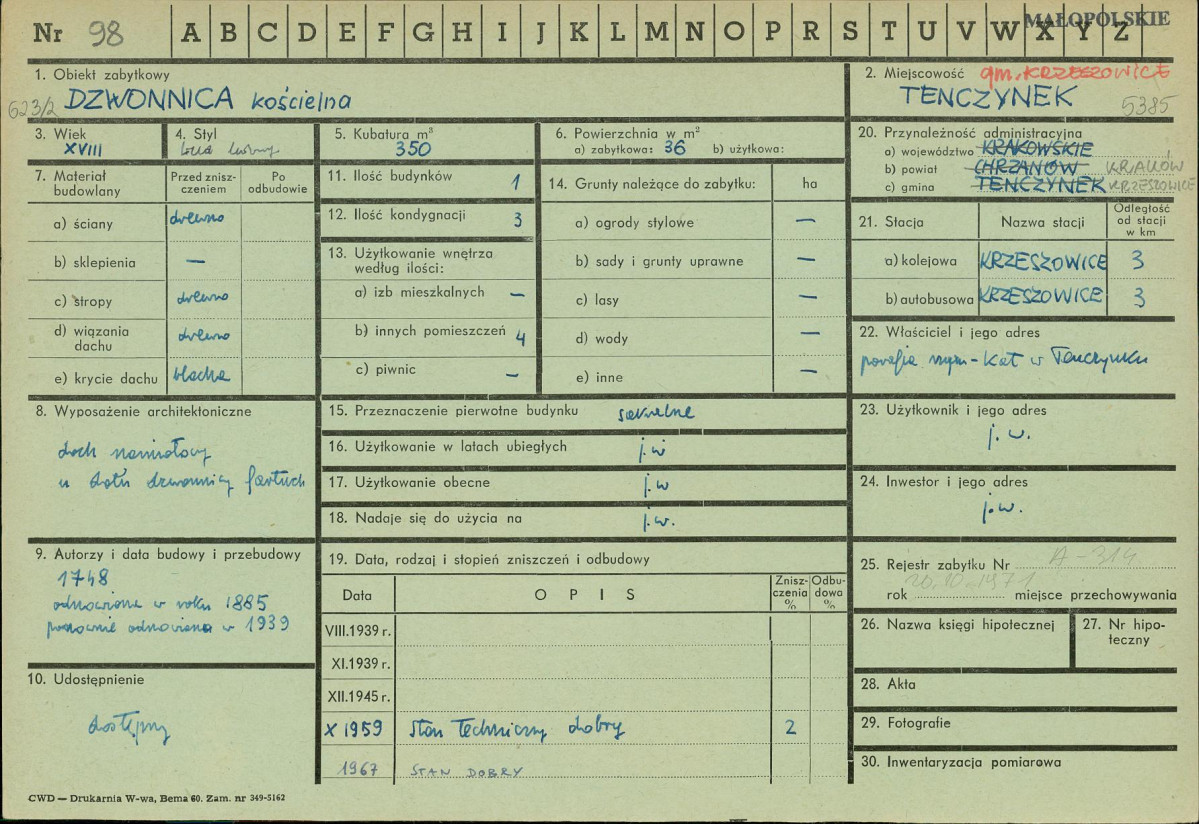 Nr 98 A B C D E F G H I J K L M N O P R S T U V W X Y Z MAŁOPOLSKIE
1. Obiekt zabytkowy
DZWONNICA kościelna
623/2
2. Miejscowość gm. KRZESZOWICE
TENCZYNEK
5385
3. Wiek
XVIII
4. Styl
5. Kubatura m³
350
6. Powierzchnia w m²
a) zabytkowa: 36 b) użytkowa:
20. Przynależność administracyjna
a) województwo KRAKOWSKIE
b) powiat CHRZANÓW KRAKÓW
c) gmina TENCZYNEK KRZESZOWICE
7. Materiał budowlany
Przed zniszczeniem
Po odbudowie
a) ściany drewno
b) sklepienia —
c) stropy drewno
d) wiązania dachu drewno
e) krycie dachu blacha
11. Ilość budynków 1
12. Ilość kondygnacji 3
13. Użytkowanie wnętrza
według ilości:
a) izb mieszkalnych —
b) innych pomieszczeń 4
c) piwnic —
14. Grunty należące do zabytku: ha
a) ogrody stylowe —
b) sady i grunty uprawne —
c) lasy —
d) wody —
e) inne —
21. Stacja Nazwa stacji Odległość od stacji w km
a) kolejowa KRZESZOWICE 3
b) autobusowa KRZESZOWICE 3
22. Właściciel i jego adres
parafia rzym-kat w Tenczynku
8. Wyposażenie architektoniczne
dach namiotowy
u dołu dzwonnicy fartuch
15. Przeznaczenie pierwotne budynku sakralne
16. Użytkowanie w latach ubiegłych j.w
17. Użytkowanie obecne j.w
18. Nadaje się do użycia na j.w.
23. Użytkownik i jego adres
j.w.
24. Inwestor i jego adres
j.w.
9. Autorzy i data budowy i przebudowy
1748
odnowiona w roku 1885
ponownie odnowiona w 1939
10. Udostępnienie
dostępny
19. Data, rodzaj i stopień zniszczeń i odbudowy
Data OPIS Zniszczenia % Odbudowa %
VIII.1939 r.
XI.1939 r.
XII.1945 r.
X 1959 Stan techniczny dobry 2
1967 STAN DOBRY
25. Rejestr zabytku Nr A-314
rok 20.10.1971 miejsce przechowywania
26. Nazwa księgi hipotecznej
27. Nr hipoteczny
28. Akta
29. Fotografie
30. Inwentaryzacja pomiarowa
CWD — Drukarnia W-wa, Bema 60. Zam. nr 349-5162